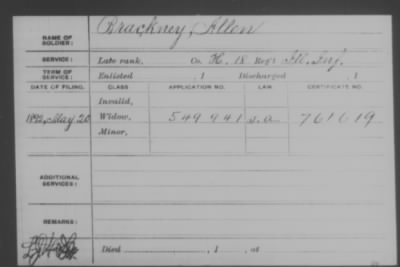 NAME OF SOLDIER: Brackney, Allen
SERVICE: Late rank, Co. H, 18 Reg't Ill. Inf.
TERM OF SERVICE: Enlisted , 1 Discharged , 1
DATE OF FILING. CLASS APPLICATION NO. LAW CERTIFICATE NO.
Invalid,
1892, May 20 Widow, 549941 761619
Minor,
ADDITIONAL SERVICES:
REMARKS:
Died , 1 , at